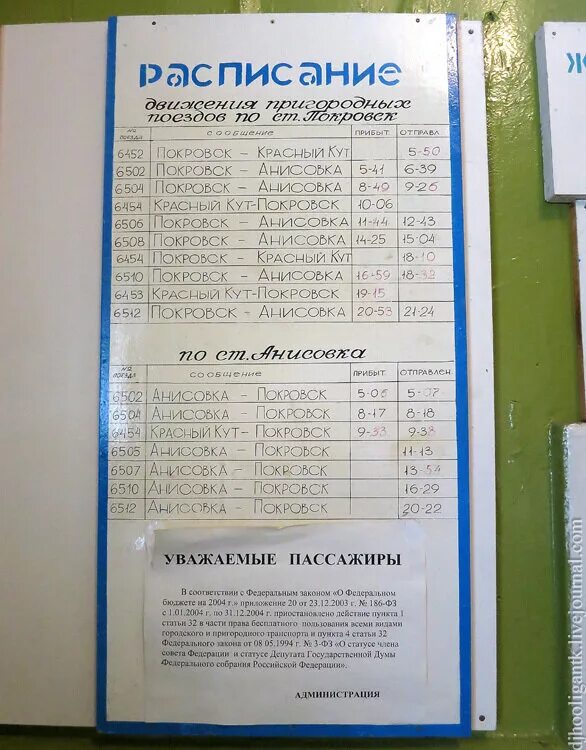 Расписание
движения пригородных
поездов по ст. Покровск
№ поезда сообщение прибыт. отправл
6452 Покровск – Красный Кут 5-50
6502 Покровск – Анисовка 5-41 6-39
6504 Покровск – Анисовка 8-49 9-26
6454 Красный Кут-Покровск 10-06
6506 Покровск – Анисовка 11-44 12-43
6508 Покровск – Анисовка 14-25 15-04
6454 Покровск – Красный Кут 18-10
6510 Покровск – Анисовка 16-59 18-32
6453 Красный Кут-Покровск 19-15
6512 Покровск – Анисовка 20-53 21-24
по ст. Анисовка
№ поезда сообщение прибыт. отправлен.
6502 Анисовка – Покровск 5-06 5-07
6504 Анисовка – Покровск 8-17 8-18
6454 Красный Кут-Покровск 9-33
6505 Анисовка – Покровск 11-13
6507 Анисовка – Покровск 13-54
6510 Анисовка – Покровск 16-29
6512 Анисовка – Покровск 20-22
УВАЖАЕМЫЕ ПАССАЖИРЫ
В соответствии с Федеральным законом «О Федеральном
бюджете на 2004 г.» приложение 20 от 23.12.2003 г. № 186-ФЗ
с 1.01.2004 г. по 31.12.2004 г. приостановлено действие пункта 1
статьи 32 в части права бесплатного пользования всеми видами
городского и пригородного транспорта и пункта 4 статьи 32
Федерального закона от 08.05.1994 г. № 3-ФЗ «О статусе члена
совета Федерации и статусе Депутата Государственной Думы
Федерального собрания Российской Федерации».
АДМИНИСТРАЦИЯ
Ж
lihooligantk.livejournal.com